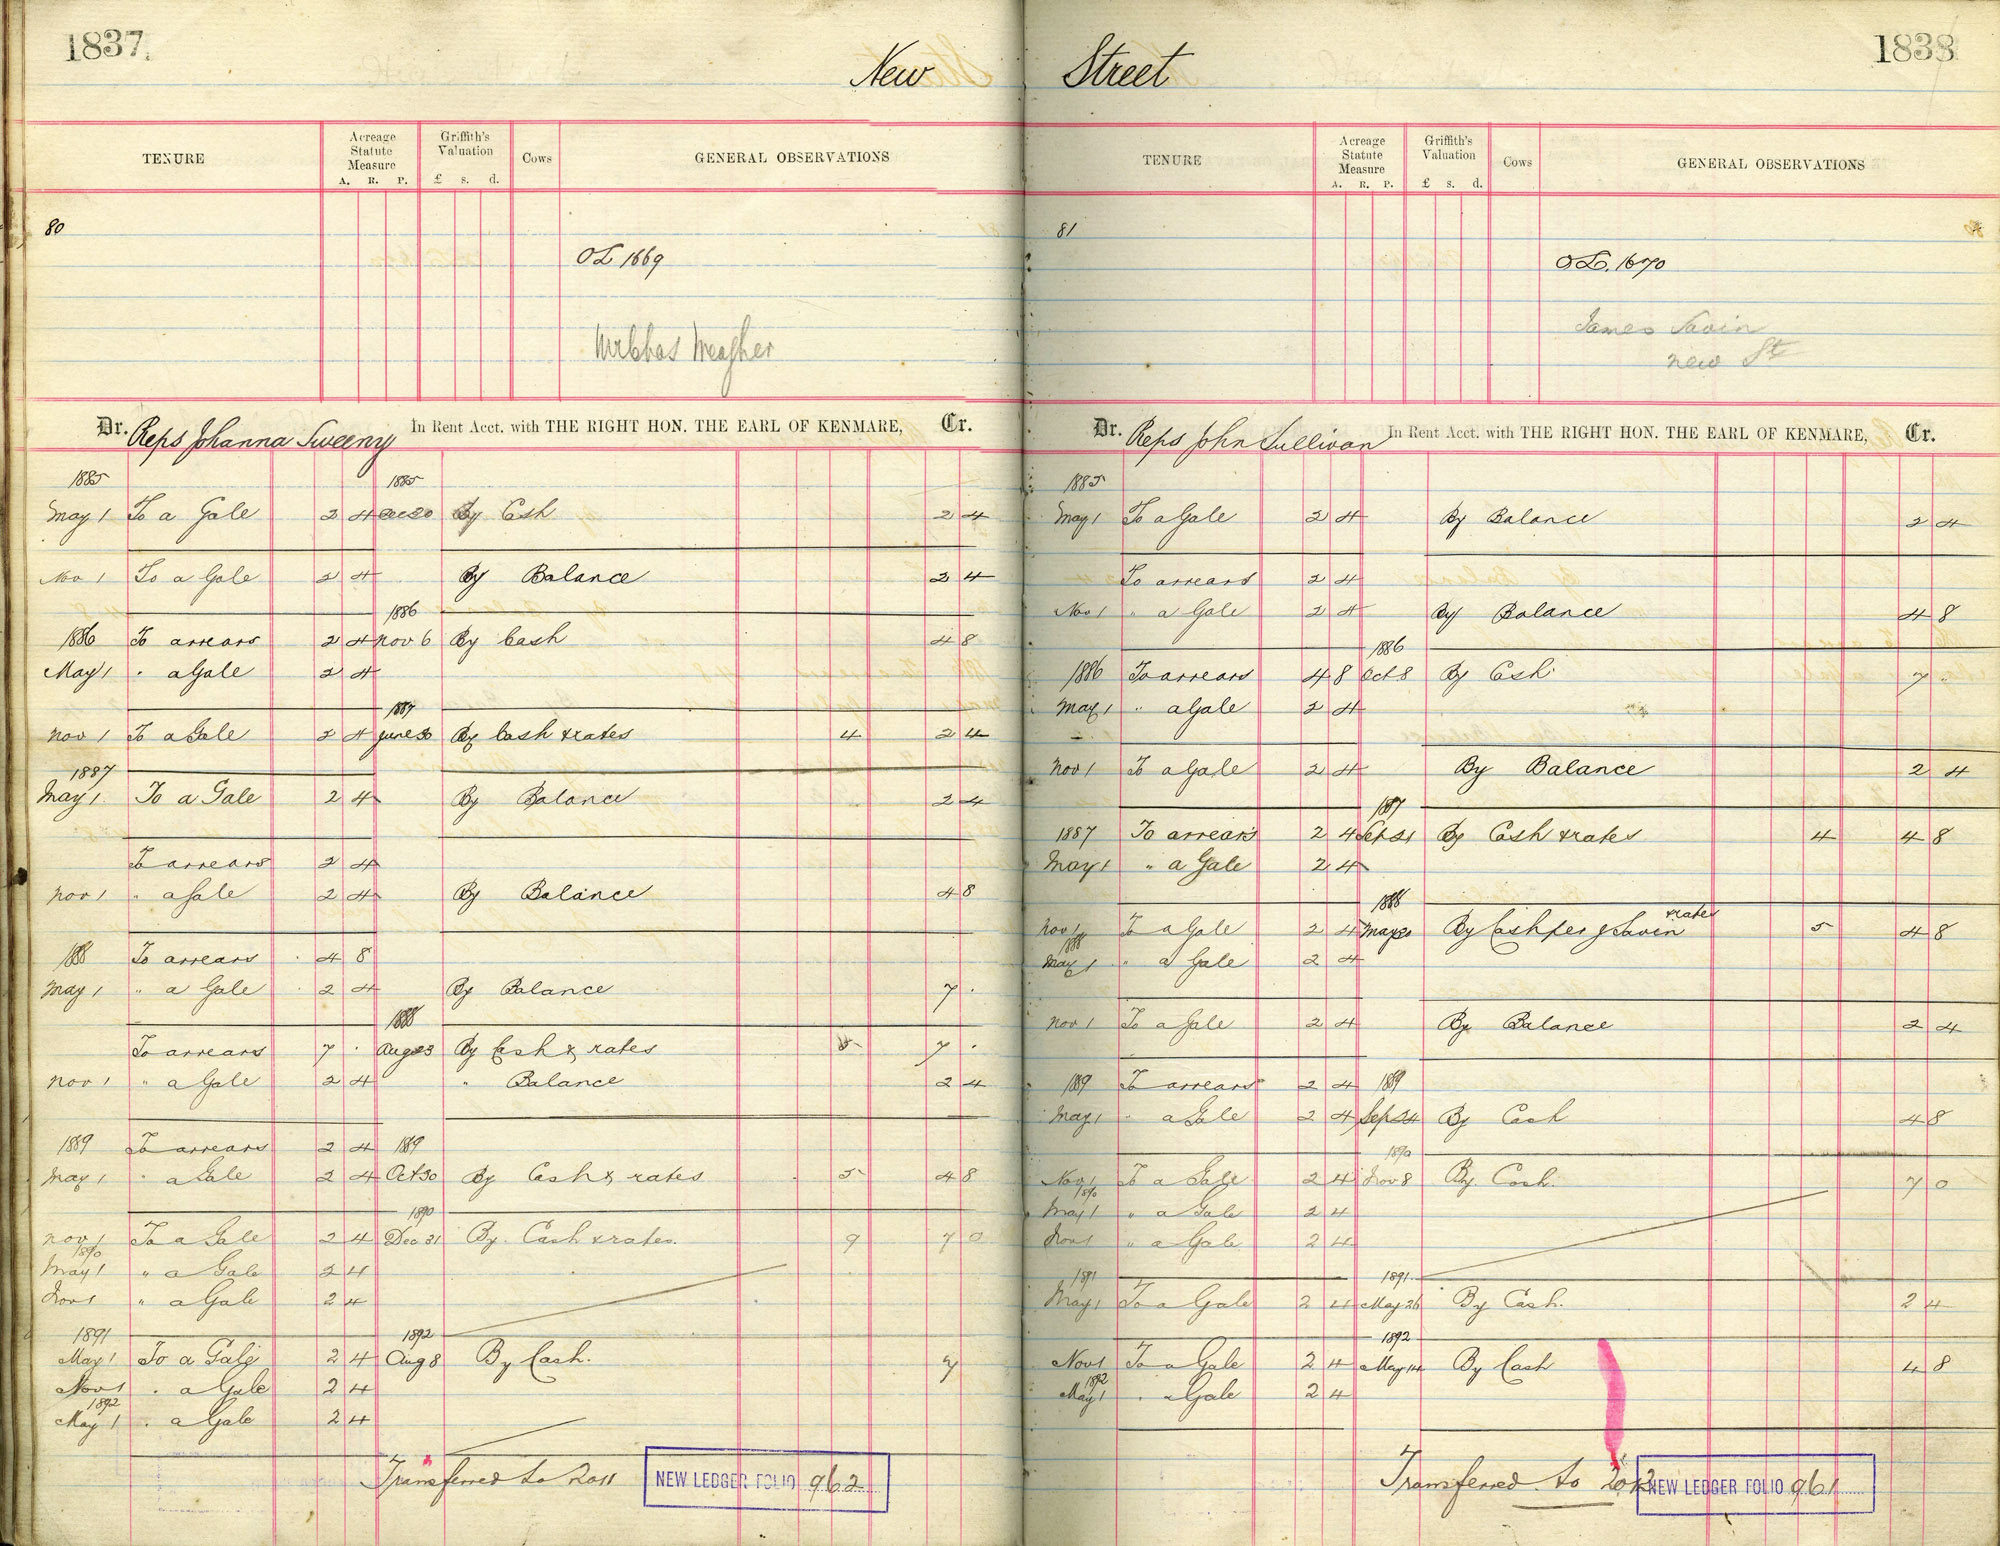 1837.
New
TENURE
Acreage Statute Measure
A. R. P.
Griffith's Valuation
£ s. d.
Cows
GENERAL OBSERVATIONS
80
OL 1669
Mr Chas Meagher
Dr. Reps Johanna Sweeny In Rent Acct. with THE RIGHT HON. THE EARL OF KENMARE, Cr.
1885 1885
May 1 To a Gale 2 4 Dec 20 By Cash 2 4
Nov 1 To a Gale 2 4 By Balance 2 4
1886
1886 To arrears 2 4 Nov 6 By Cash 4 8
May 1 " a Gale 2 4
1887
Nov 1 To a Gale 2 4 June 30 By Cash & rates 4 2 4
1887
May 1 To a Gale 2 4 By Balance 2 4
To arrears 2 4
Nov 1 " a Gale 2 4 By Balance 4 8
1888 To arrears 4 8
May 1 " a Gale 2 4 By Balance 7 .
1888
To arrears 7 . Aug 23 By Cash & rates 4 7 .
Nov 1 " a Gale 2 4 " Balance 2 4
1889 To arrears 2 4 1889
May 1 " a Gale 2 4 Oct 30 By Cash & rates 5 4 8
1890
Nov 1 To a Gale 2 4 Dec 31 By Cash & rates. 9 7 0
1890
May 1 " a Gale 2 4
Nov 1 " a Gale 2 4
1891 1892
May 1 To a Gale 2 4 Aug 8 By Cash. 7
Nov 1 . a Gale 2 4
1892
May 1 . a Gale 2 4
Transferred to 2011
NEW LEDGER FOLIO 962
1838
Street
TENURE
Acreage Statute Measure
A. R. P.
Griffith's Valuation
£ s. d.
Cows
GENERAL OBSERVATIONS
81
OL. 1670
James Savin
New St
Dr. Reps John Sullivan In Rent Acct. with THE RIGHT HON. THE EARL OF KENMARE, Cr.
1885
May 1 To a Gale 2 4 By Balance 2 4
To arrears 2 4
Nov 1 " a Gale 2 4 By Balance 4 8
1886
1886 To arrears 4 8 Oct 8 By Cash 7 .
May 1 " a Gale 2 4
Nov 1 To a Gale 2 4 By Balance 2 4
1887
1887 To arrears 2 4 Sept 21 By Cash & rates 4 4 8
May 1 " a Gale 2 4
1888
Nov 1 To a Gale 2 4 May 30 By Cash per J Savin & rates 5 4 8
1888
May 1 " a Gale 2 4
Nov 1 To a Gale 2 4 By Balance 2 4
1889 To arrears 2 4 1889
May 1 " a Gale 2 4 Sep 24 By Cash 4 8
1890
Nov 1 To a Gale 2 4 Nov 8 By Cash. 7 0
1890
May 1 " a Gale 2 4
Nov 1 " a Gale 2 4
1891 1891
May 1 To a Gale 2 4 May 26 By Cash. 2 4
1892
Nov 1 To a Gale 2 4 May 14 By Cash 4 8
1892
May 1 . a Gale 2 4
Transferred to 2012
NEW LEDGER FOLIO 961